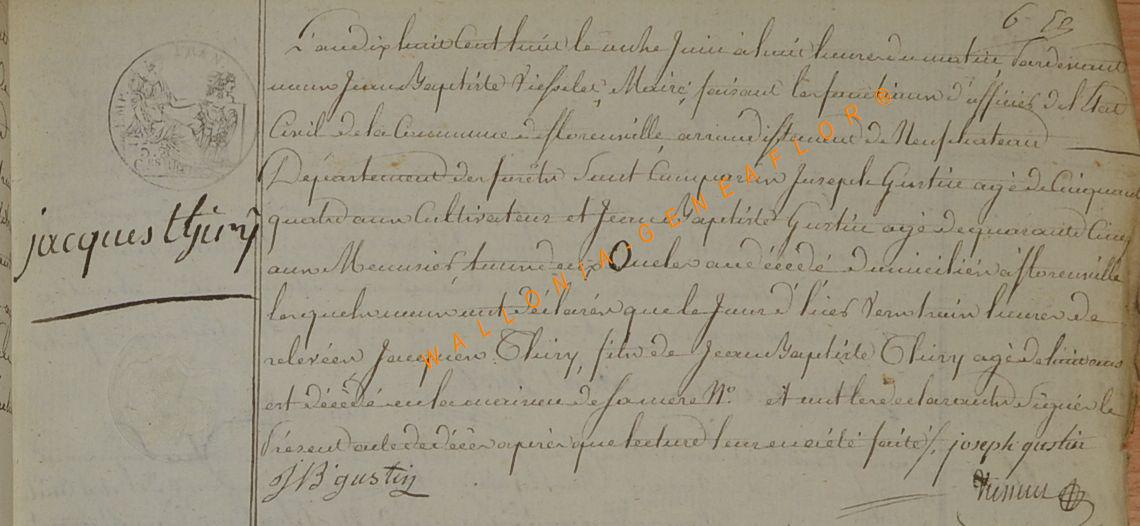 6
L'an dix huit Cent huit le onze Juin à huit heures du matin Pardevant
nous Jean Baptiste Maire, faisant les fonctions d'officier de l'Etat
Civil de la Commune de florenville, arrondissement de Neufchateau
Département des forêts Sont Comparus Joseph Gustin agé de Cinquante
quatre ans Cultivateur et Jean Baptiste Gustin agé de quarante Cinq
ans Menuisier tous deux Oncles au décédé domiciliés à florenville
lesquels nous ont déclarés que le Jour d'hier vers trois heures de
relevéen Jacques Thiry, fils de Jean Baptiste Thiry agé de huit ans
est décédé en la maison de sa mere N.º et ont les declarants Signés le
Présent acte de décès après que lecture leur en a été faite /. joseph gustin
JB gustin
jacques thiry
WALLONIA-GENEAFLOR ©